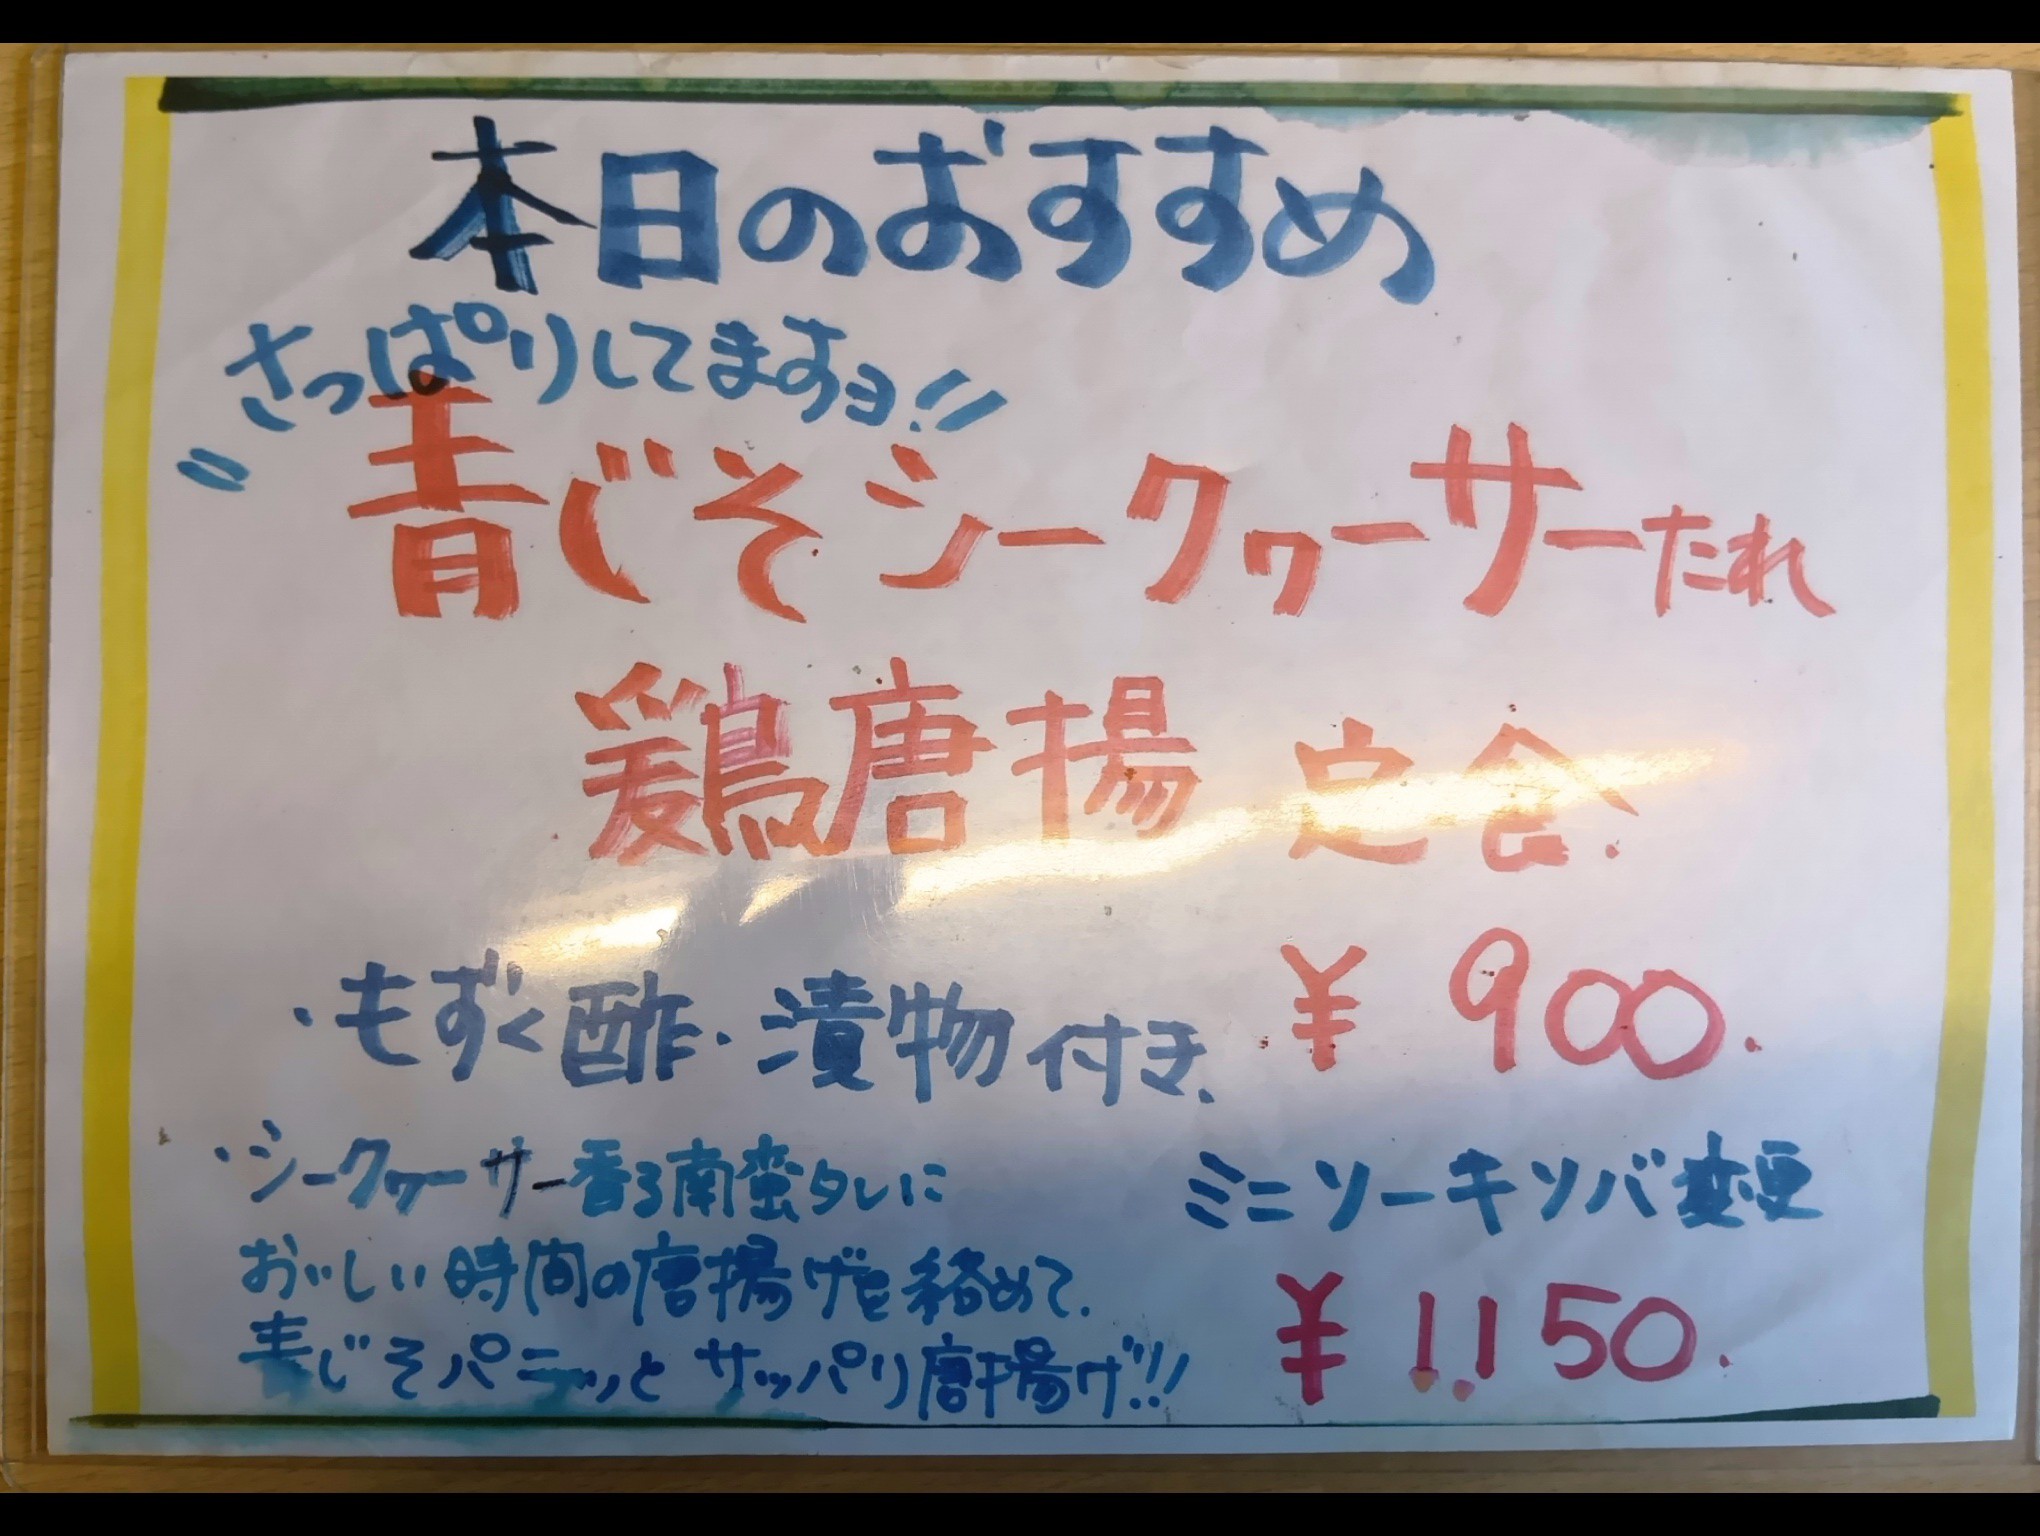 本日のおすすめ
さっぱりしてますヨ!!
青じそシークヮーサーたれ
鶏唐揚 定食.
・もずく酢・漬物付き、 ¥900.
・シークヮーサー香る南蛮タレに
おいしい時間の唐揚げを絡めて、
青じそパラッと サッパリ唐揚げ!!!
ミニソーキソバ変更
¥1150.